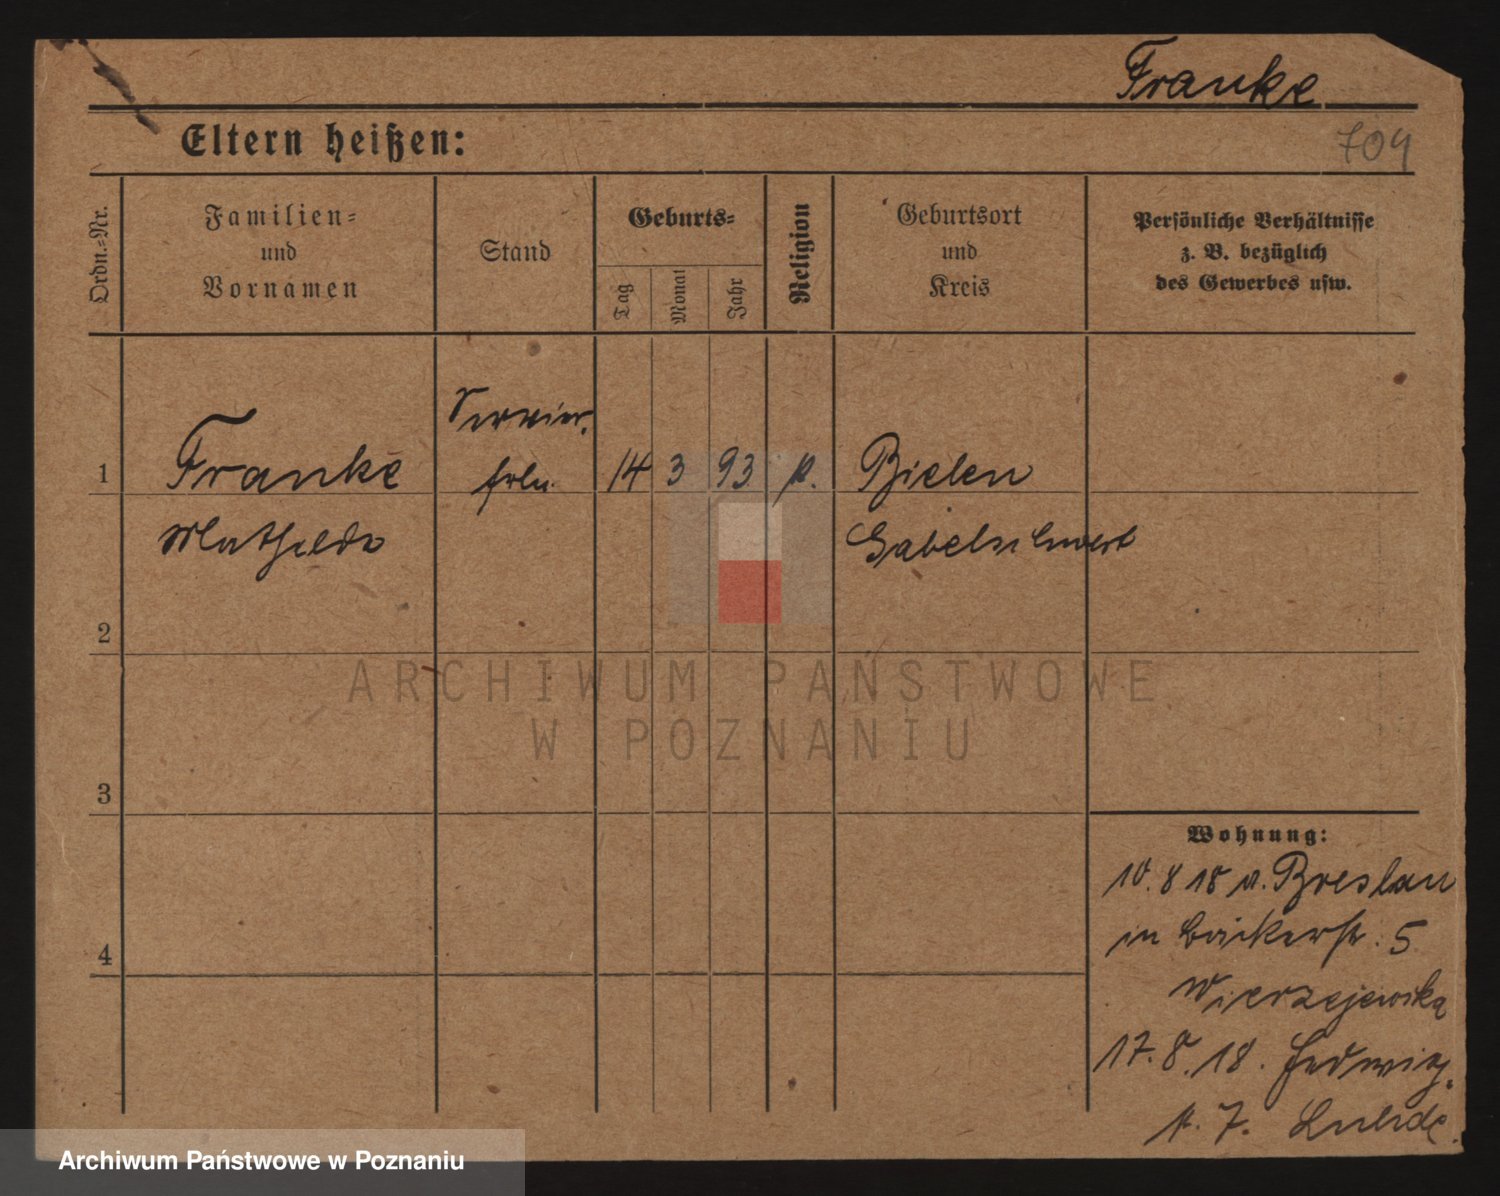 Franke
704
Eltern heißen:
Ordn.=Nr.
Familien=
und
Vornamen
Stand
Geburts=
Tag
Monat
Jahr
Religion
Geburtsort
und
Kreis
Persönliche Verhältnisse
z. B. bezüglich
des Gewerbes usw.
Servier.
1 Franke frln. 14 3 93 k. Bielen
Mathilde Habelschwert
2
ARCHIWUM PAŃSTWOWE
W POZNANIU
3
4
Wohnung:
10. 8 18 v. Breslau
in Bäckerstr. 5
Wierzejewska
17. 8. 18. Hedwig
str. 7.
Archiwum Państwowe w Poznaniu